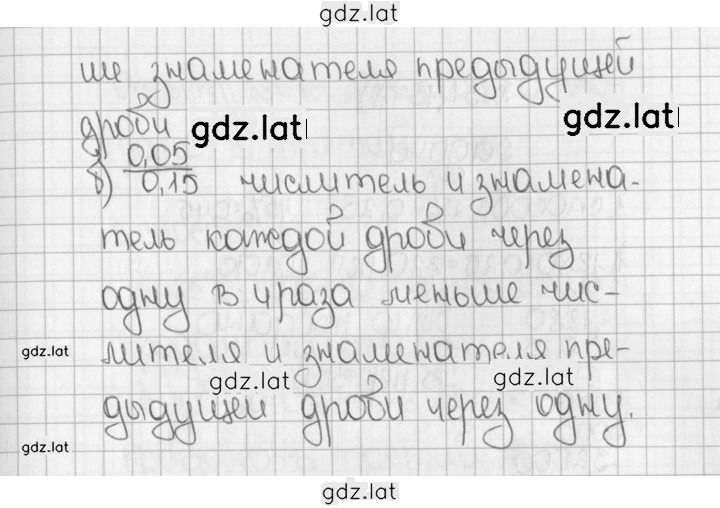 gdz.lat
ше знаменателя предыдущей
gdz.lat
дроби
gdz.lat
б) 0,05
0,15 числитель и знамена-
тель каждой дроби через
одну в 4 раза меньше чис-
gdz.lat
лителя и знаменателя пре-
gdz.lat
gdz.lat
дыдущей дроби через одну.
gdz.lat
gdz.lat